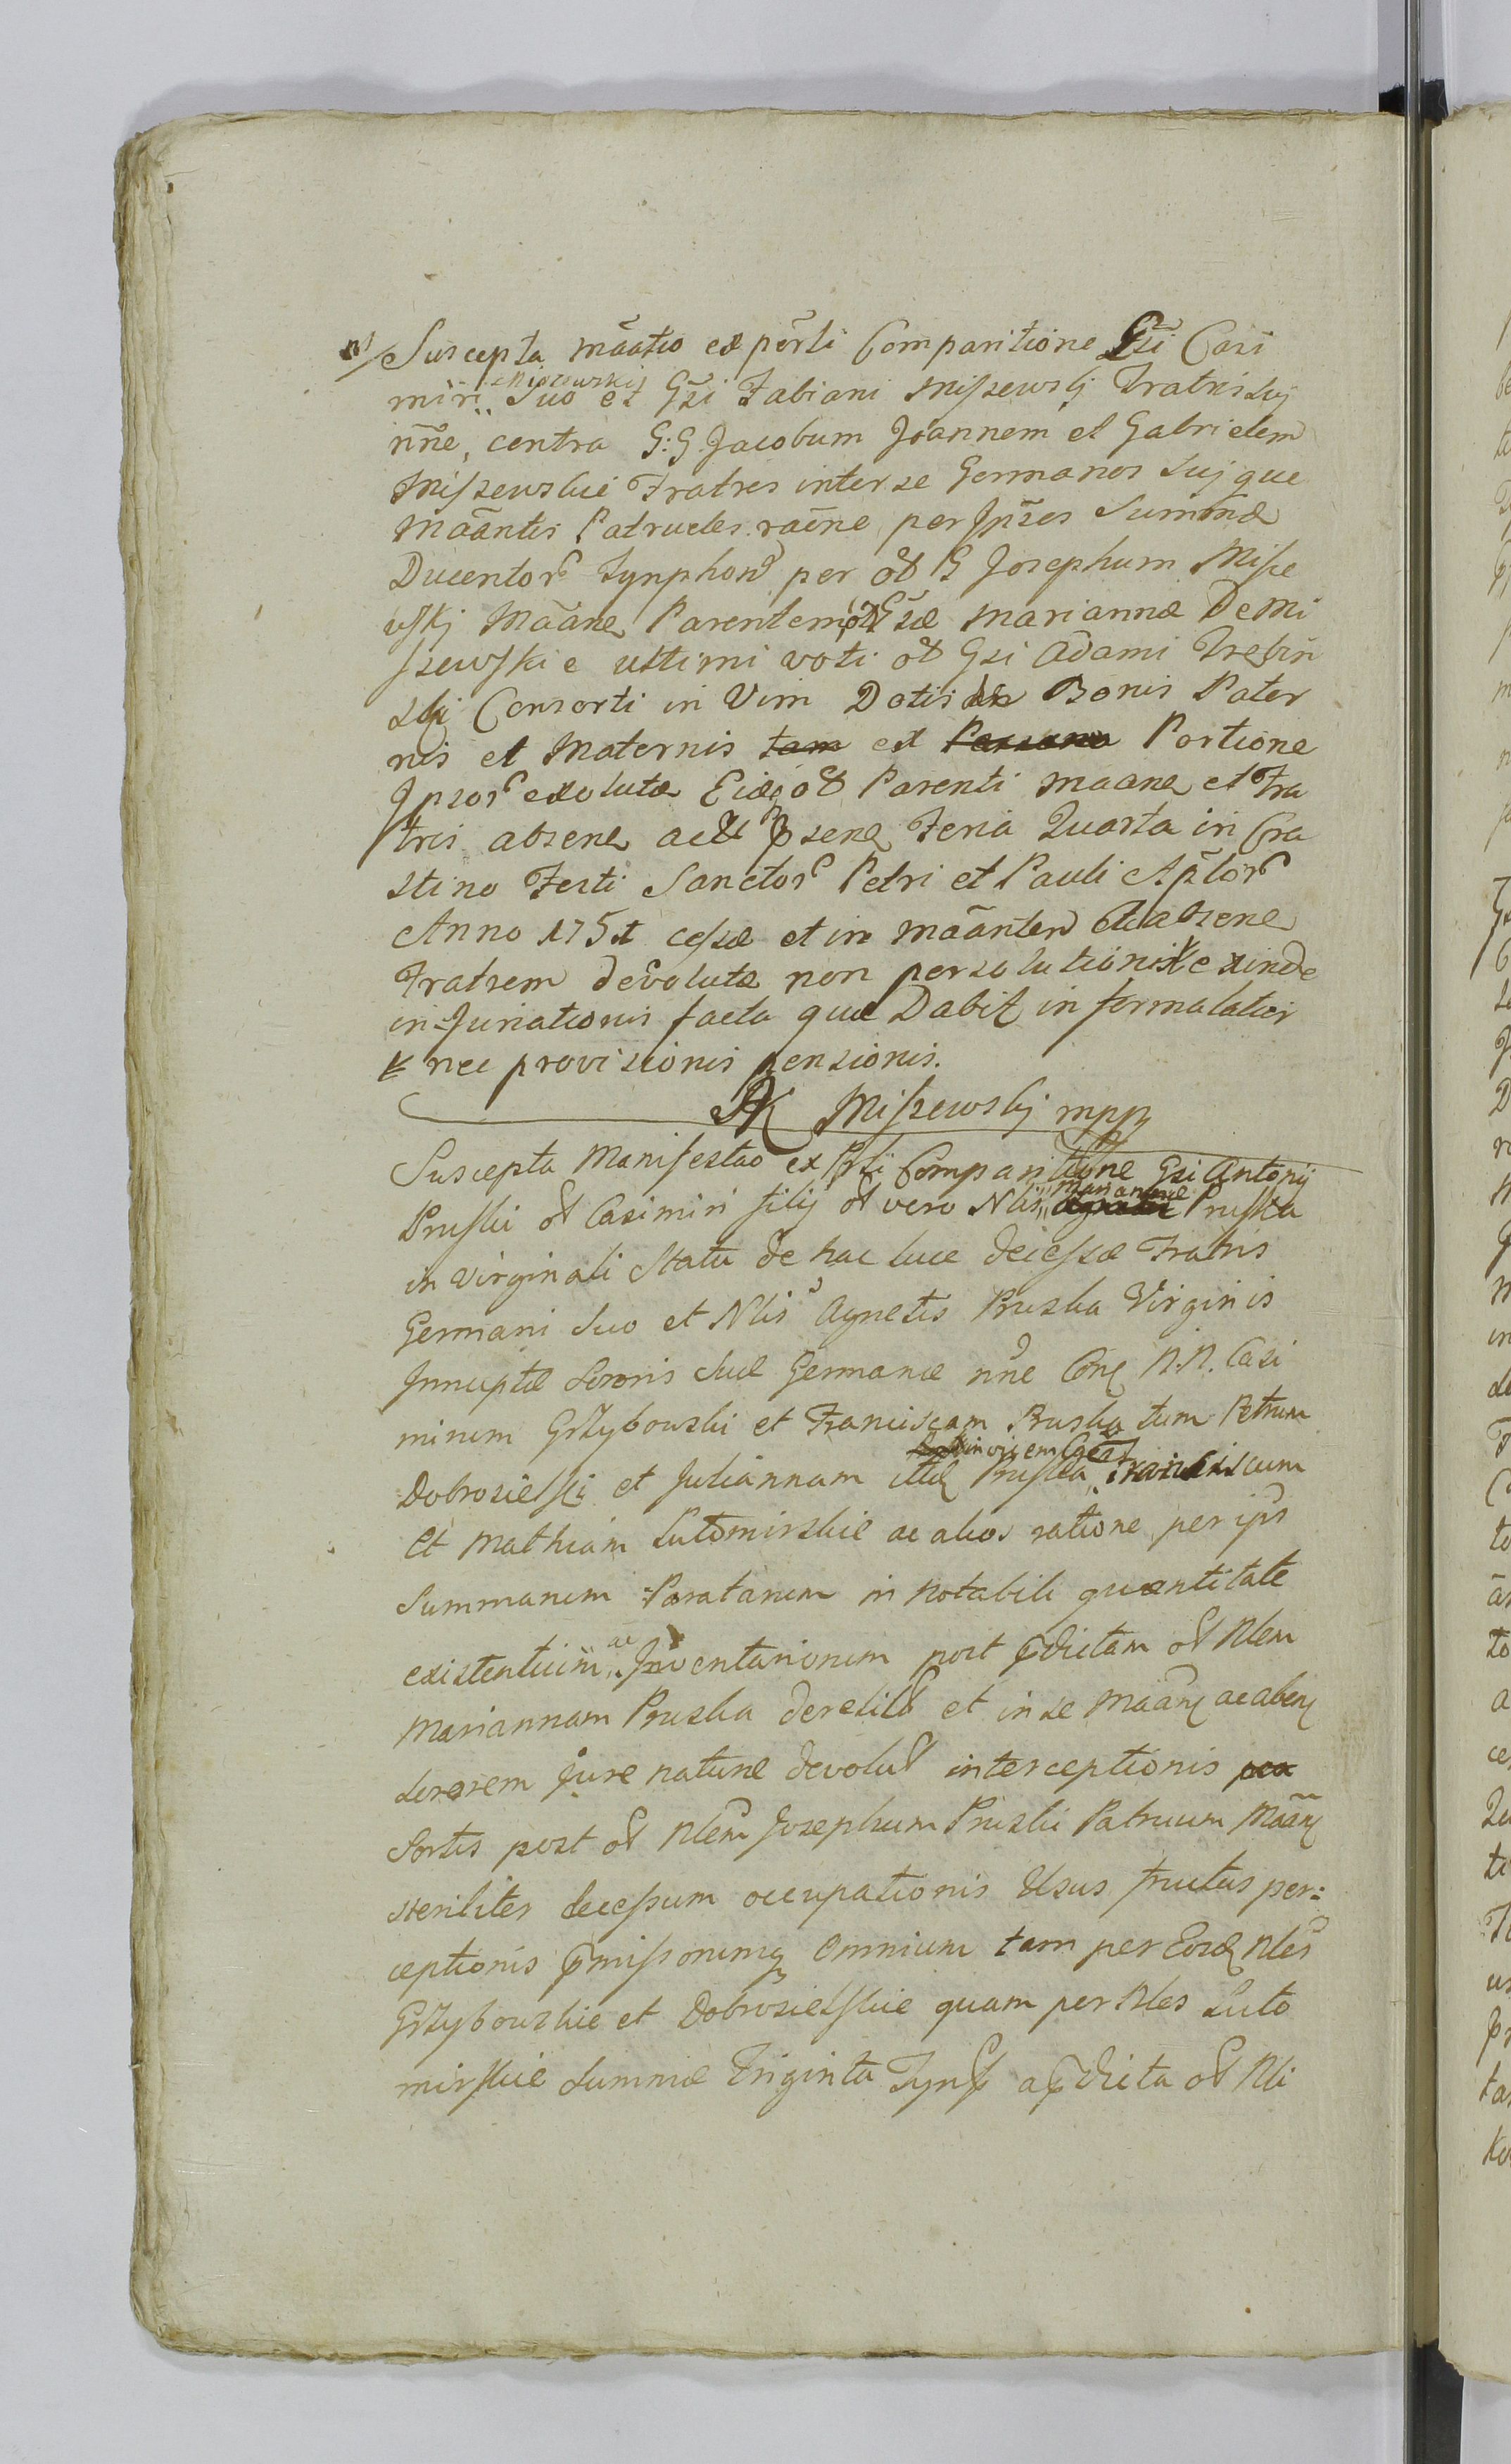 Suscepta mãatio ex pers̃li Comparitione Gs̃i Casi
miri Miszewskij Suo et Gs̃i Fabiani Miszewskj Fratris Suj
nñe, contra G: G. Jacobum Joannem et Gabrielem
Miszewskie Fratres inter se Germanos Suj que
Mãantis Patrueles raẽne per Jps̃os Summæ
Ducentor Tynphon per oł G Josephum Misze
wskj Mãane Parentem oł Gsæ Mariannæ De Mi
szewskie ultimi voti oł Gsi Adami Trebin
ski Consorti in Vim Dotis de Bonis Pater
nis et Maternis tam ex Portione
Jpsor exolutæ Eidē oł Parenti maane et Fra
tris absene ac psene Feria Quarta in Cra
stino Festi Sanctor Petri et Pauli Ap̃lor
Anno 1751 cessæ et in mãantem et absene
Fratrem devolutæ non persolutionis exinde
injuriationis facta que Dabit in forma latior
nec provisionis pensionis.
AK Miszewskj mpp
Suscepta Manifestao ex psli Comparitione Gsi Antonij
Pruski oł Casimiri filij oł vero Nlis Mariannæ Pruska
in virginali Statu de hac luce decessæ Fratris
Germani Suo et Nlis Agnetis Pruska Virginis
Innuptæ Sororis Suæ Germanæ nne Con N. N. Casi
mirum Grzybowski et Franciscam Pruska tum Petrum
Dobrosielski et Juliannam itid Pruska in vicem Franciscum
et Mathiam Lutomirskie ac alios ratione per ips
Summarum Paratarum in notabili quantitate
existentium ac Inventariorum post pdictam oł Nlem
Mariannam Pruska derelict et in se Mãan ac aben
sororem jure naturæ devolut interceptionis
Sortis post oł Nlem Josephum Pruski Patruum Mãan
steriliter decessum occupationis Usus fructus per:
ceptionis pmissorumq omnium tam per Eosd Nles
Grzybowskie et Dobrosielskie quam per Nles Luto
mirskie Summæ Triginta Tynf a pdicta oł Nli